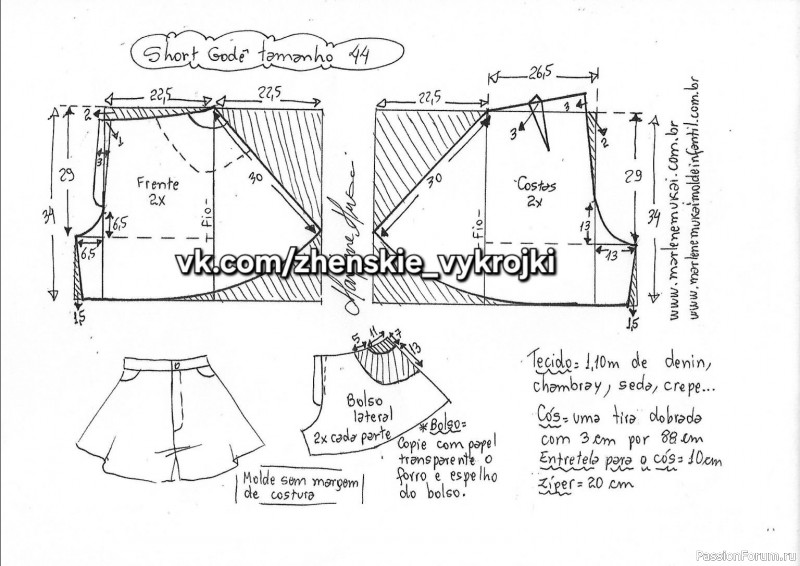 Short Godê tamanho 44
26,5
22,5
22,5
22,5
2
1
3
29
34
6,5
6,5
1,5
Frente
2x
Fio
30
3
3
2
30
Costas
2x
Fio
29
34
13
13
1,5
www.marlenemukai.com.br
www.marlenemukaimoldeinfantil.com.br
vk.com/zhenskie_vykrojki
5
11
7
13
Bolso
lateral
2x cada parte
*Bolso=
Copie com papel
transparente o
forro e espelho
do bolso.
Molde sem margem
de costura
Tecido= 1,10m de denin,
chambray, seda, crepe...
Cós= uma tira dobrada
com 3 cm por 88 cm
Entretela para o cós= 10cm
zíper= 20 cm
PassionForum.ru